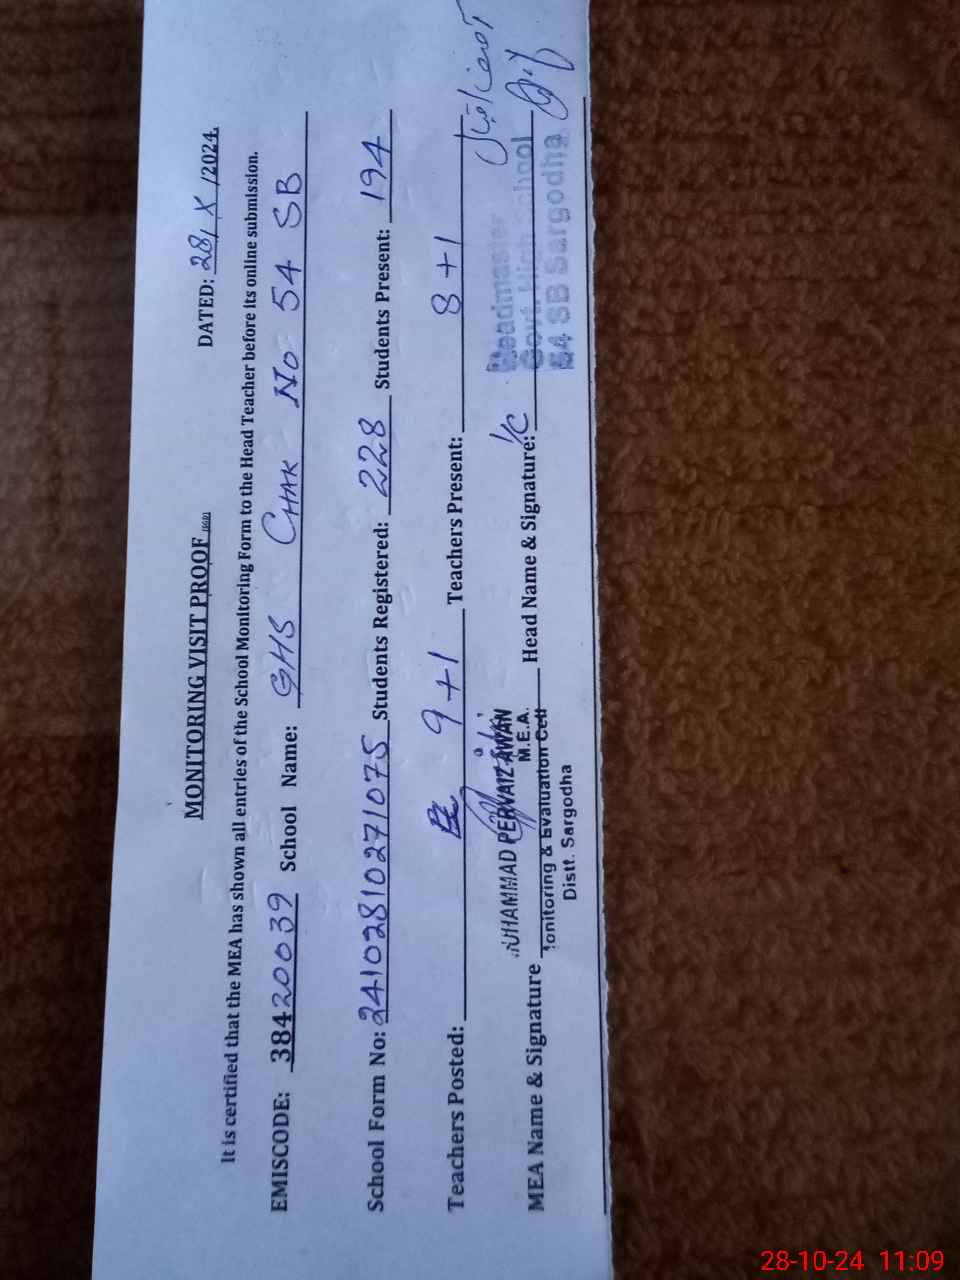 MONITORING VISIT PROOF
DATED: 28/X/2024.
It is certified that the MEA has shown all entries of the School Monitoring Form to the Head Teacher before its online submission.
EMISCODE: 38420039 School Name: GHS CHAK NO 54 SB
School Form No: 24102810271075 Students Registered: 228 Students Present: 194
Teachers Posted: 9+1 Teachers Present: 8+1
MEA Name & Signature Head Name & Signature: I/C
MUHAMMAD PERVAIZ AWAN
M.E.A.
Monitoring & Evaluation Cell
Distt. Sargodha
آصف اقبال
Headmaster
Govt. High School
54 SB Sargodha
28-10-24 11:09